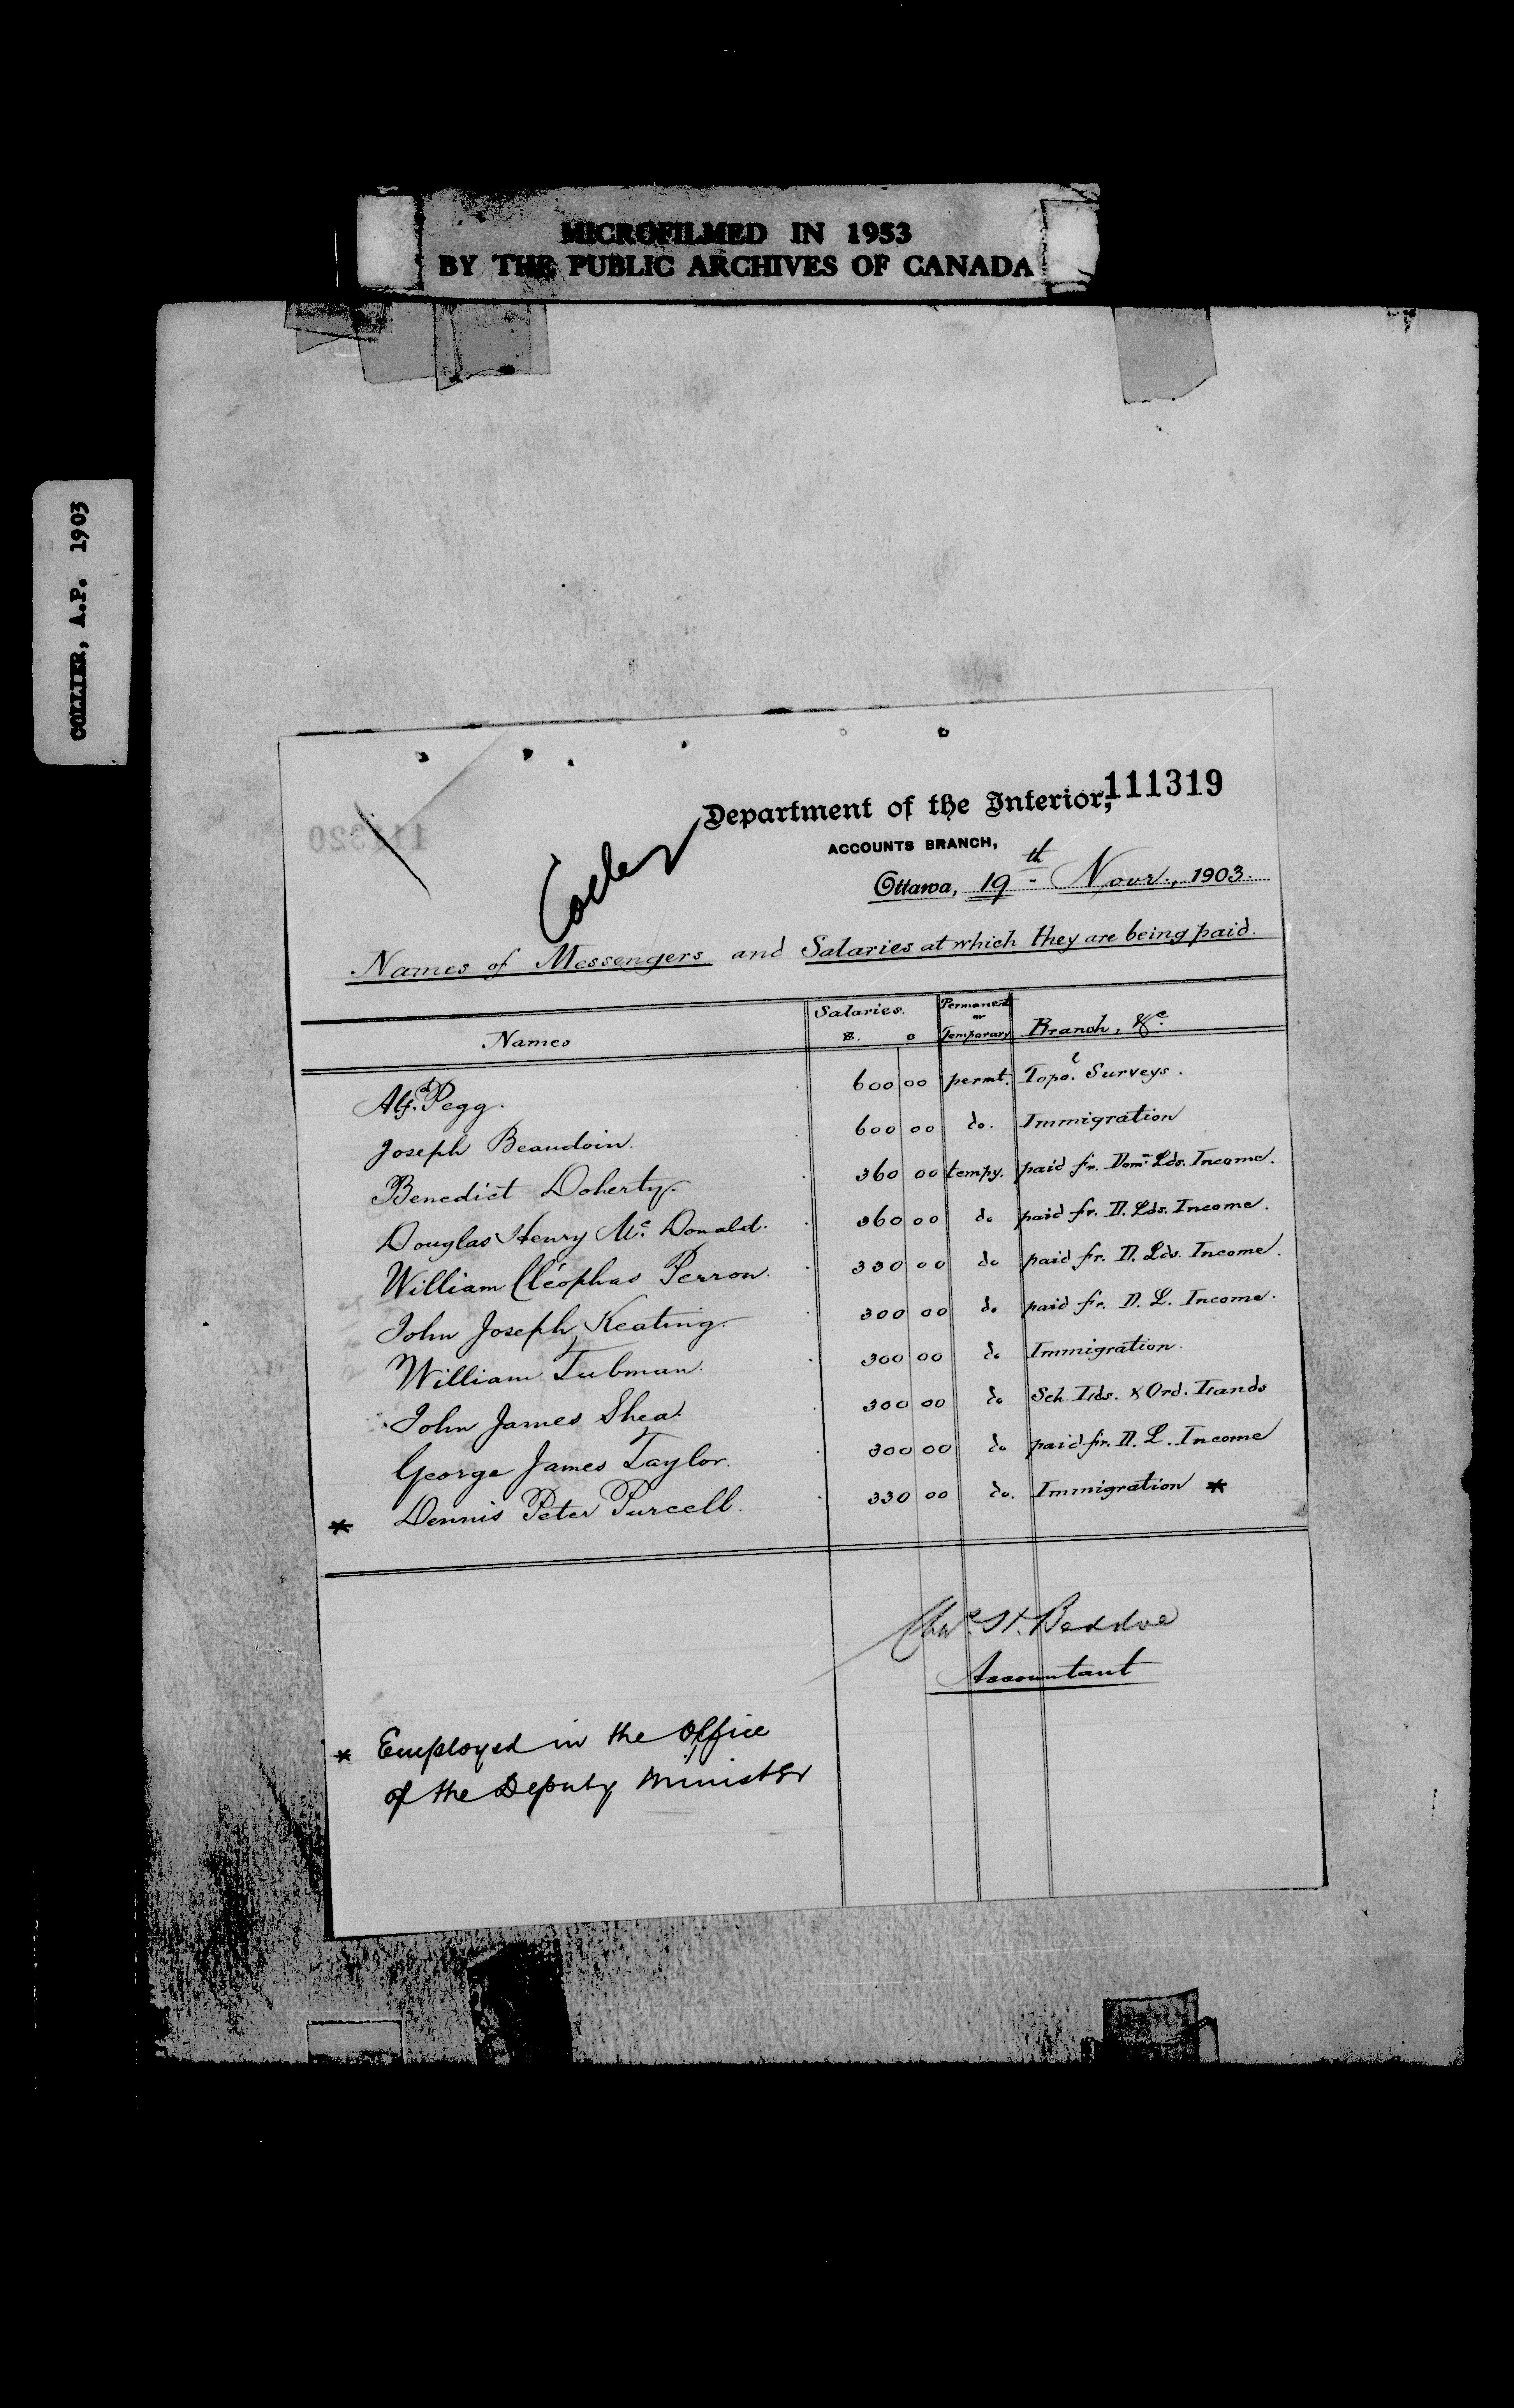 MICROFILMED IN 1953
BY THE PUBLIC ARCHIVES OF CANADA
COLLIER, A.P. 1903
111319
Department of the Interior,
ACCOUNTS BRANCH,
111320
Ottawa, 19th Novr., 1903.
Names of Messengers and Salaries at which they are being paid.
Names Salaries. $. c Permanent or Temporary Branch, &c.
Alfd. Pegg. 600 00 permt. Topol. Surveys.
Joseph Beaudoin. 600 00 do. Immigration
Benedict Doherty. 360 00 tempy. paid fr. Domn. Lds. Income.
Douglas Henry McDonald. 360 00 do paid fr. D. Lds. Income.
William Cléophas Perron. 330 00 do paid fr. D. Lds. Income.
John Joseph Keating. 300 00 do paid fr. D. L. Income.
William Tubman. 300 00 do Immigration.
John James Shea. 300 00 do Sch. Lds. & Ord. Lands
George James Taylor. 300 00 do paid fr. D. L. Income
* Dennis Peter Purcell. 330 00 do. Immigration *
Chas. H. Beddoe
Accountant
* Employed in the Office
of the Deputy Minister